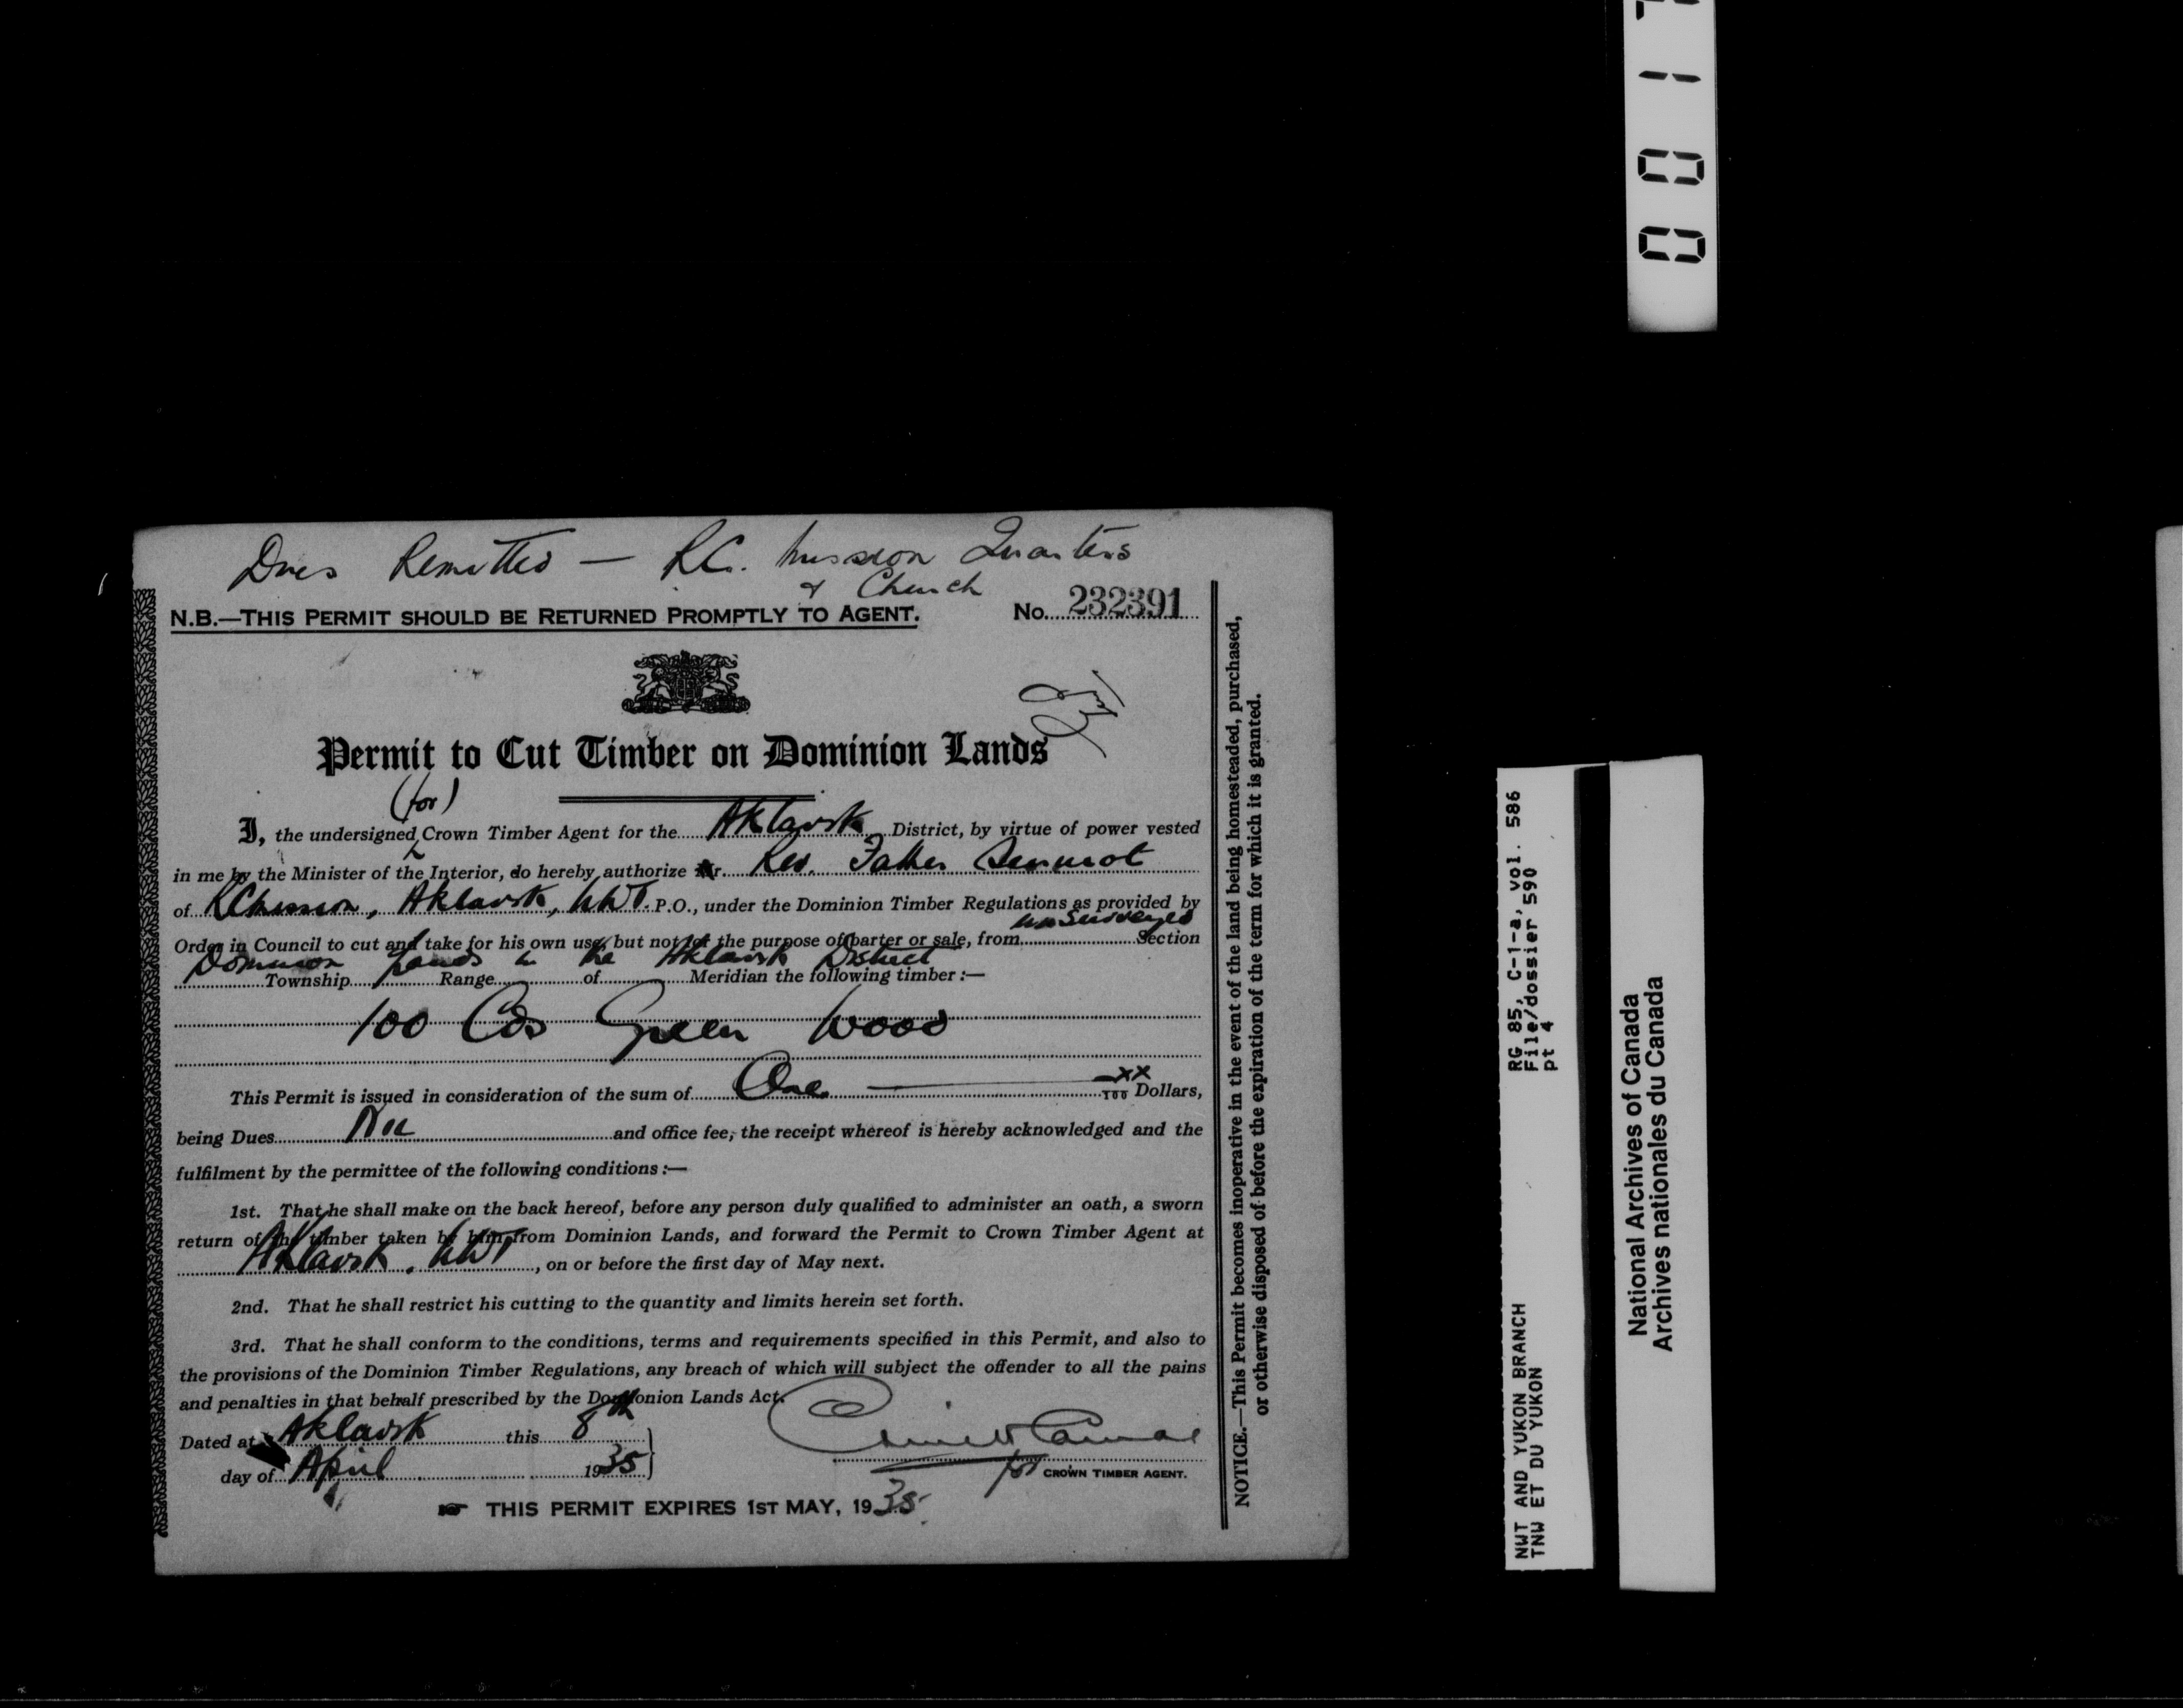 Dues Remitted — R.C. Mission Quarters
& Church
N.B.—THIS PERMIT SHOULD BE RETURNED PROMPTLY TO AGENT. No. 232391
Permit to Cut Timber on Dominion Lands
(for)
I, the undersigned, Crown Timber Agent for the Aklavik District, by virtue of power vested
in me by the Minister of the Interior, do hereby authorize Mr. Rev. Father
of RC Mission, Aklavik, NWT. P.O., under the Dominion Timber Regulations as provided by
unsurveyed
Order in Council to cut and take for his own use, but not for the purpose of barter or sale, from Section
Dominion Lands in the Aklavik District
Township Range of Meridian the following timber :—
100 Cds Green Wood
This Permit is issued in consideration of the sum of One xx/100 Dollars,
being Dues Nil and office fee, the receipt whereof is hereby acknowledged and the
fulfilment by the permittee of the following conditions :—
1st. That he shall make on the back hereof, before any person duly qualified to administer an oath, a sworn
return of the timber taken by him from Dominion Lands, and forward the Permit to Crown Timber Agent at
Aklavik, NWT, on or before the first day of May next.
2nd. That he shall restrict his cutting to the quantity and limits herein set forth.
3rd. That he shall conform to the conditions, terms and requirements specified in this Permit, and also to
the provisions of the Dominion Timber Regulations, any breach of which will subject the offender to all the pains
and penalties in that behalf prescribed by the Dominion Lands Act.
Dated at Aklavik this 8th
day of April 1935
for CROWN TIMBER AGENT.
THIS PERMIT EXPIRES 1ST MAY, 1935.
NOTICE.—This Permit becomes inoperative in the event of the land being homesteaded, purchased,
or otherwise disposed of before the expiration of the term for which it is granted.
NWT AND YUKON BRANCH RG 85, C-1-a, vol. 586
TNW ET DU YUKON File/dossier 590
pt 4
National Archives of Canada
Archives nationales du Canada